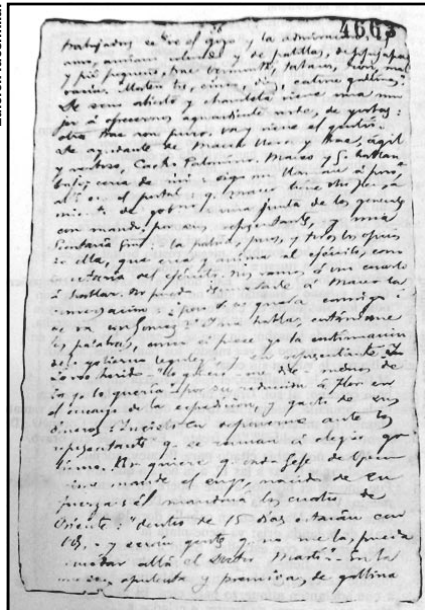 4663
trabajadores se ve el gozo y la admiración: el
amo, anciano colorado y de patillas, de jipijapa
y pié pequeño, trae vermouth, tabacos, ron, mal
vasía. "Maten tres, cinco, diez, catorce gallinas".
De seno abierto y chancleta viene una mu
jer á ofrecernos aguardiente verde, de yerbas:
otra trae ron puro. Va y viene el gentío.
De ayudante de Maceo lleva y trae, ágil
y verboso, Castro Palomino. Maceo y G. hablan
bajo, cerca de mí: me llaman á poco,
allí en el portal: q. Maceo tiene otro pensa
miento de gobno: una junta de los generales
con mando, por sus representantes, y una
Secretaría Gral: la patria, pues, y todos los oficios
de ella, que crea y anima al ejército, como
secretaría del ejército. Nos vamos á un cuarto
á hablar. No puedo desenredarle á Maceo la
conversación: ¿pero V. se queda conmigo ó
se va con Gomez? Y me habla, cortándome
las palabras, como si fuese yo la continuación
del gobierno leguleyo, y su representante. Lo
veo herido "lo quiero - me dice - menos de
lo q. lo quería" por su reducción á Flor en
el encargo de la expedición, y gasto de sus
dineros. Insisto en deponerme ante los
representantes q. se reunan á elegir go
bierno. No quiere q. cada Gefe de Oper.
mande el suyo, nacido de su
fuerza: él mandará los cuatro de
Oriente: "dentro de 15 dias estarán con
Vds. - y serán gentes q. no me las pueda
enredar allá el Doctor Martí" - En la
mesa, opulenta y premiosa, de gallina